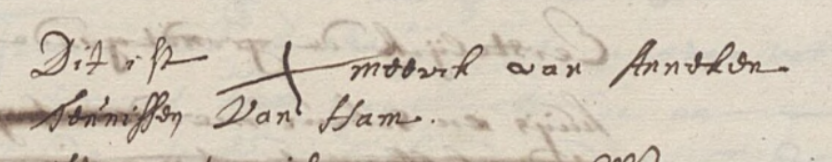 Dit ist + meerck van Anneken
Teunissen Van Ham.